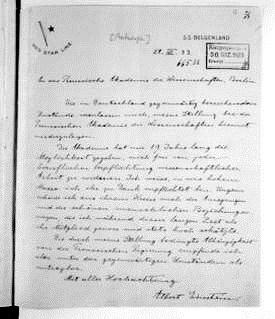 RED STAR LINE
[Antwerpen]
S.S. BELGENLAND
28. III 33.
An die Preussische Akademie der Wissenschaften, Berlin
Die in Deutschland gegenwärtig herrschenden
Zustände veranlassen mich, meine Stellung bei der
Preussischen Akademie der Wissenschaften hiermit
niederzulegen.
Die Akademie hat mir 19 Jahre lang die
Möglichkeit gegeben, mich frei von jeder
beruflichen Verpflichtung wissenschaftlicher
Arbeit zu widmen. Ich weiss, in wie hohem
Masse ich ihr zu Dank verpflichtet bin. Ungern
scheide ich aus ihrem Kreise auch der Anregungen
und der schönen menschlichen Beziehungen
wegen, die ich während dieser langen Zeit als
ihr Mitglied genoss und stets hoch schätzte.
Die durch meine Stellung bedingte Abhängigkeit
von der Preussischen Regierung empfinde ich
aber unter den gegenwärtigen Umständen als
untragbar.
Mit aller Hochachtung
Albert Einstein.